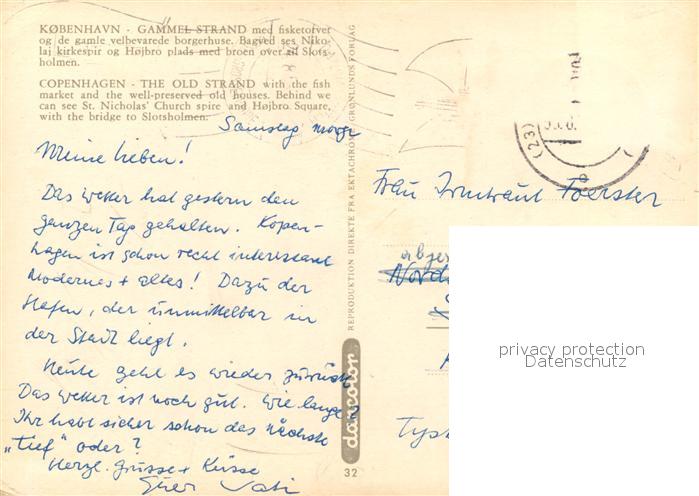 KØBENHAVN - GAMMEL STRAND med fisketorvet
og de gamle velbevarede borgerhuse. Bagved ses Niko-
laj kirkespir og Højbro plads med broen over til Slots-
holmen.
COPENHAGEN - THE OLD STRAND with the fish
market and the well-preserved old houses. Behind we
can see St. Nicholas' Church spire and Højbro Square,
with the bridge to Slotsholmen.
Samstag morge
Meine Lieben!
Das Wetter hat gestern den
ganzen Tag gehalten. Kopen-
hagen ist schon recht interessant
Modernes + altes! Dazu der
Hafen, der unmittelbar in
der Stadt liegt.
Heute geht es wieder zurück
Das Wetter ist noch gut. Wie lange?
Ihr habt sicher schon das nächste
„Tief" oder?
Herzl. Grüsse + Küsse
Euer Vati
REPRODUKTION DIREKTE FRA EKTACHROM GRØNLUNDS FORLAG
dancolor
32
(23)
Frau Irmtraut Foerster
Nord
Tyst
privacy protection
Datenschutz